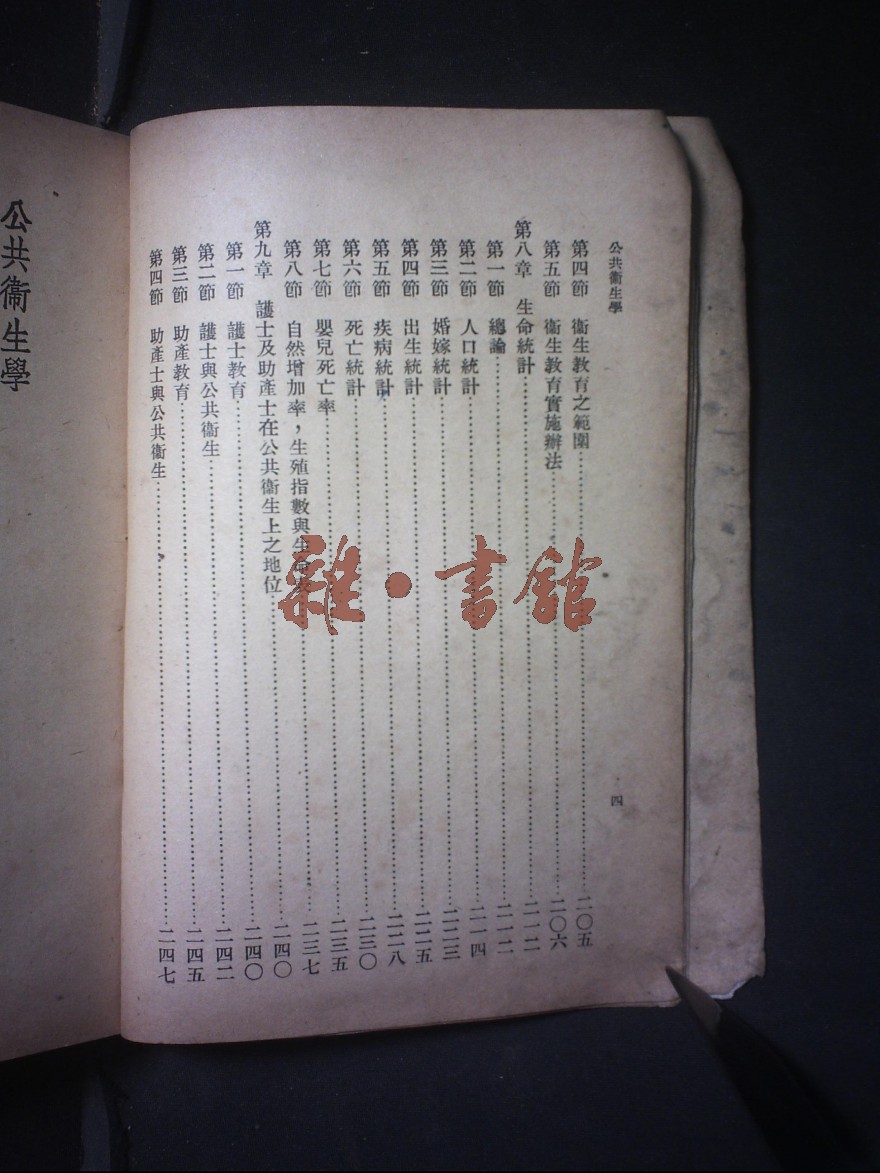 公共衞生學
四
第四節 衞生教育之範圍……二〇五
第五節 衞生教育實施辦法……二〇六
第八章 生命統計……二一二
第一節 總論……二一二
第二節 人口統計……二一四
第三節 婚嫁統計……二二三
第四節 出生統計……二二五
第五節 疾病統計……二二八
第六節 死亡統計……二三〇
第七節 嬰兒死亡率……二三五
第八節 自然增加率，生殖指數與生……二三七
第九章 護士及助產士在公共衞生上之地位……二四〇
第一節 護士教育……二四〇
第二節 護士與公共衞生……二四二
第三節 助產教育……二四五
第四節 助產士與公共衞生……二四七
公共衞生學
雜·書館